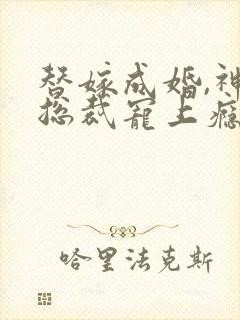 替嫁成婚,神
总裁宠上瘾
哈里法克斯